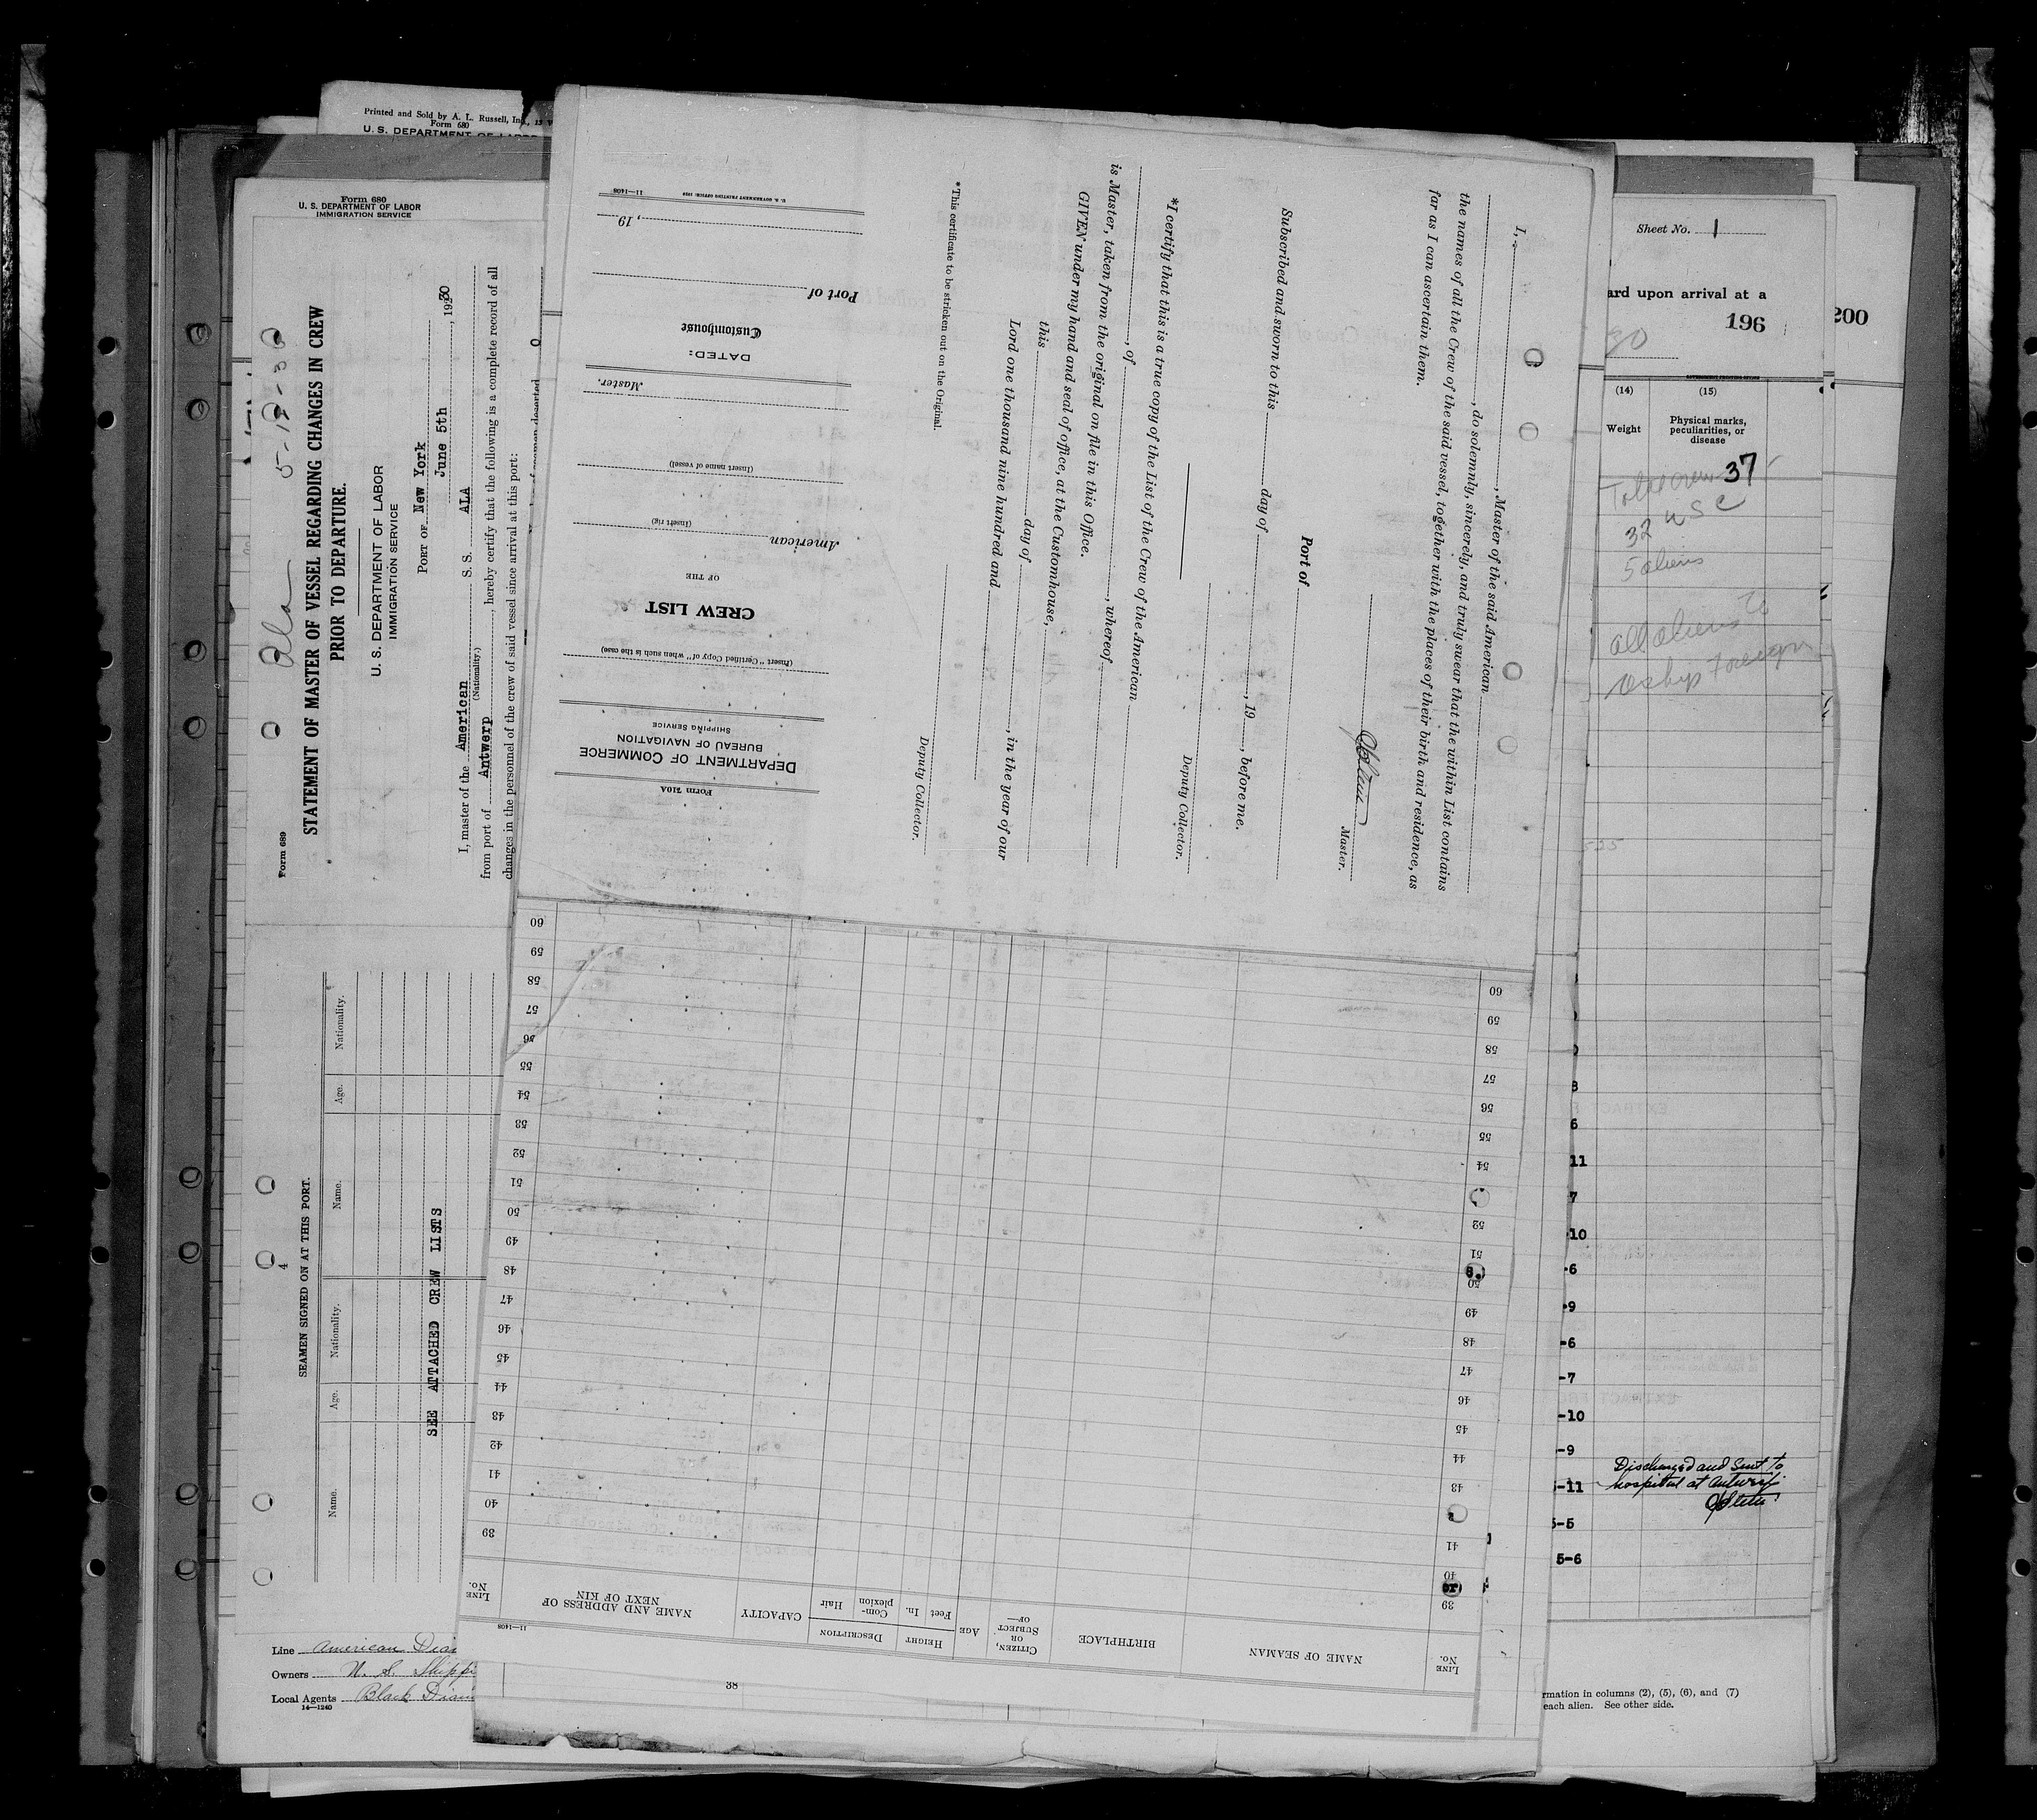 Printed and Sold by A. L. Russell, Inc., 13
Form 680
U. S. DEPARTMENT OF LABOR
Form 680
U. S. DEPARTMENT OF LABOR
IMMIGRATION SERVICE
Form 689
Ala 5-12-30
STATEMENT OF MASTER OF VESSEL REGARDING CHANGES IN CREW
PRIOR TO DEPARTURE.
U. S. DEPARTMENT OF LABOR
IMMIGRATION SERVICE
PORT OF New York
June 5th, 1930
I, master of the American S. S. ALA
(Nationality.)
from port of Antwerp, hereby certify that the following is a complete record of all
changes in the personnel of the crew of said vessel since arrival at this port:
seamen deserted 0
4
SEAMEN SIGNED ON AT THIS PORT.
Name. Age. Nationality. Name. Age. Nationality.
SEE ATTACHED CREW LISTS
Line American
Owners U. S.
Local Agents Black
14—1240
Form 710A
DEPARTMENT OF COMMERCE
BUREAU OF NAVIGATION
SHIPPING SERVICE
(Insert "Certified Copy of" when such is the case)
CREW LIST
OF THE
American
(Insert rig)
(Insert name of vessel)
Master.
DATED:
Customhouse
Port of
, 19
11—1408 U. S. GOVERNMENT PRINTING OFFICE: 1929
I, , Master of the said American
, do solemnly, sincerely, and truly swear that the within List contains
the names of all the Crew of the said vessel, together with the places of their birth and residence, as
far as I can ascertain them.
Master.
Port of
Subscribed and sworn to this day of , 19 , before me.
Deputy Collector.
*I certify that this is a true copy of the List of the Crew of the American
, of , whereof
is Master, taken from the original on file in this Office.
GIVEN under my hand and seal of office, at the Customhouse,
this day of , in the year of our
Lord one thousand nine hundred and
Deputy Collector.
*This certificate to be stricken out on the Original.
11—1408
LINE No.
NAME OF SEAMAN
BIRTHPLACE
CITIZEN, OR SUBJECT OF—
AGE
HEIGHT
Feet In.
DESCRIPTION
Complexion Hair
CAPACITY
NAME AND ADDRESS OF NEXT OF KIN
LINE No.
39 39
40 40
41 41
42
43 43
44 44
45 45
46 46
47 47
48 48
49 49
50 50
51 51
52 52
53
54 54
55 55
56 56
57 57
58 58
59 59
60 60
38
Sheet No. 1
ard upon arrival at a
196
200
30
(14) (15)
Weight Physical marks, peculiarities, or disease
Total crew 37
32 USC
5 aliens
all aliens to
reship foreign
525
8
6
11
7
10
-6
-9
-6
-7
-10
-9
5-11
5-5
5-6
Discharged and Sent to
hospital at Antwerp.
rmation in columns (2), (5), (6), and (7)
each alien. See other side.